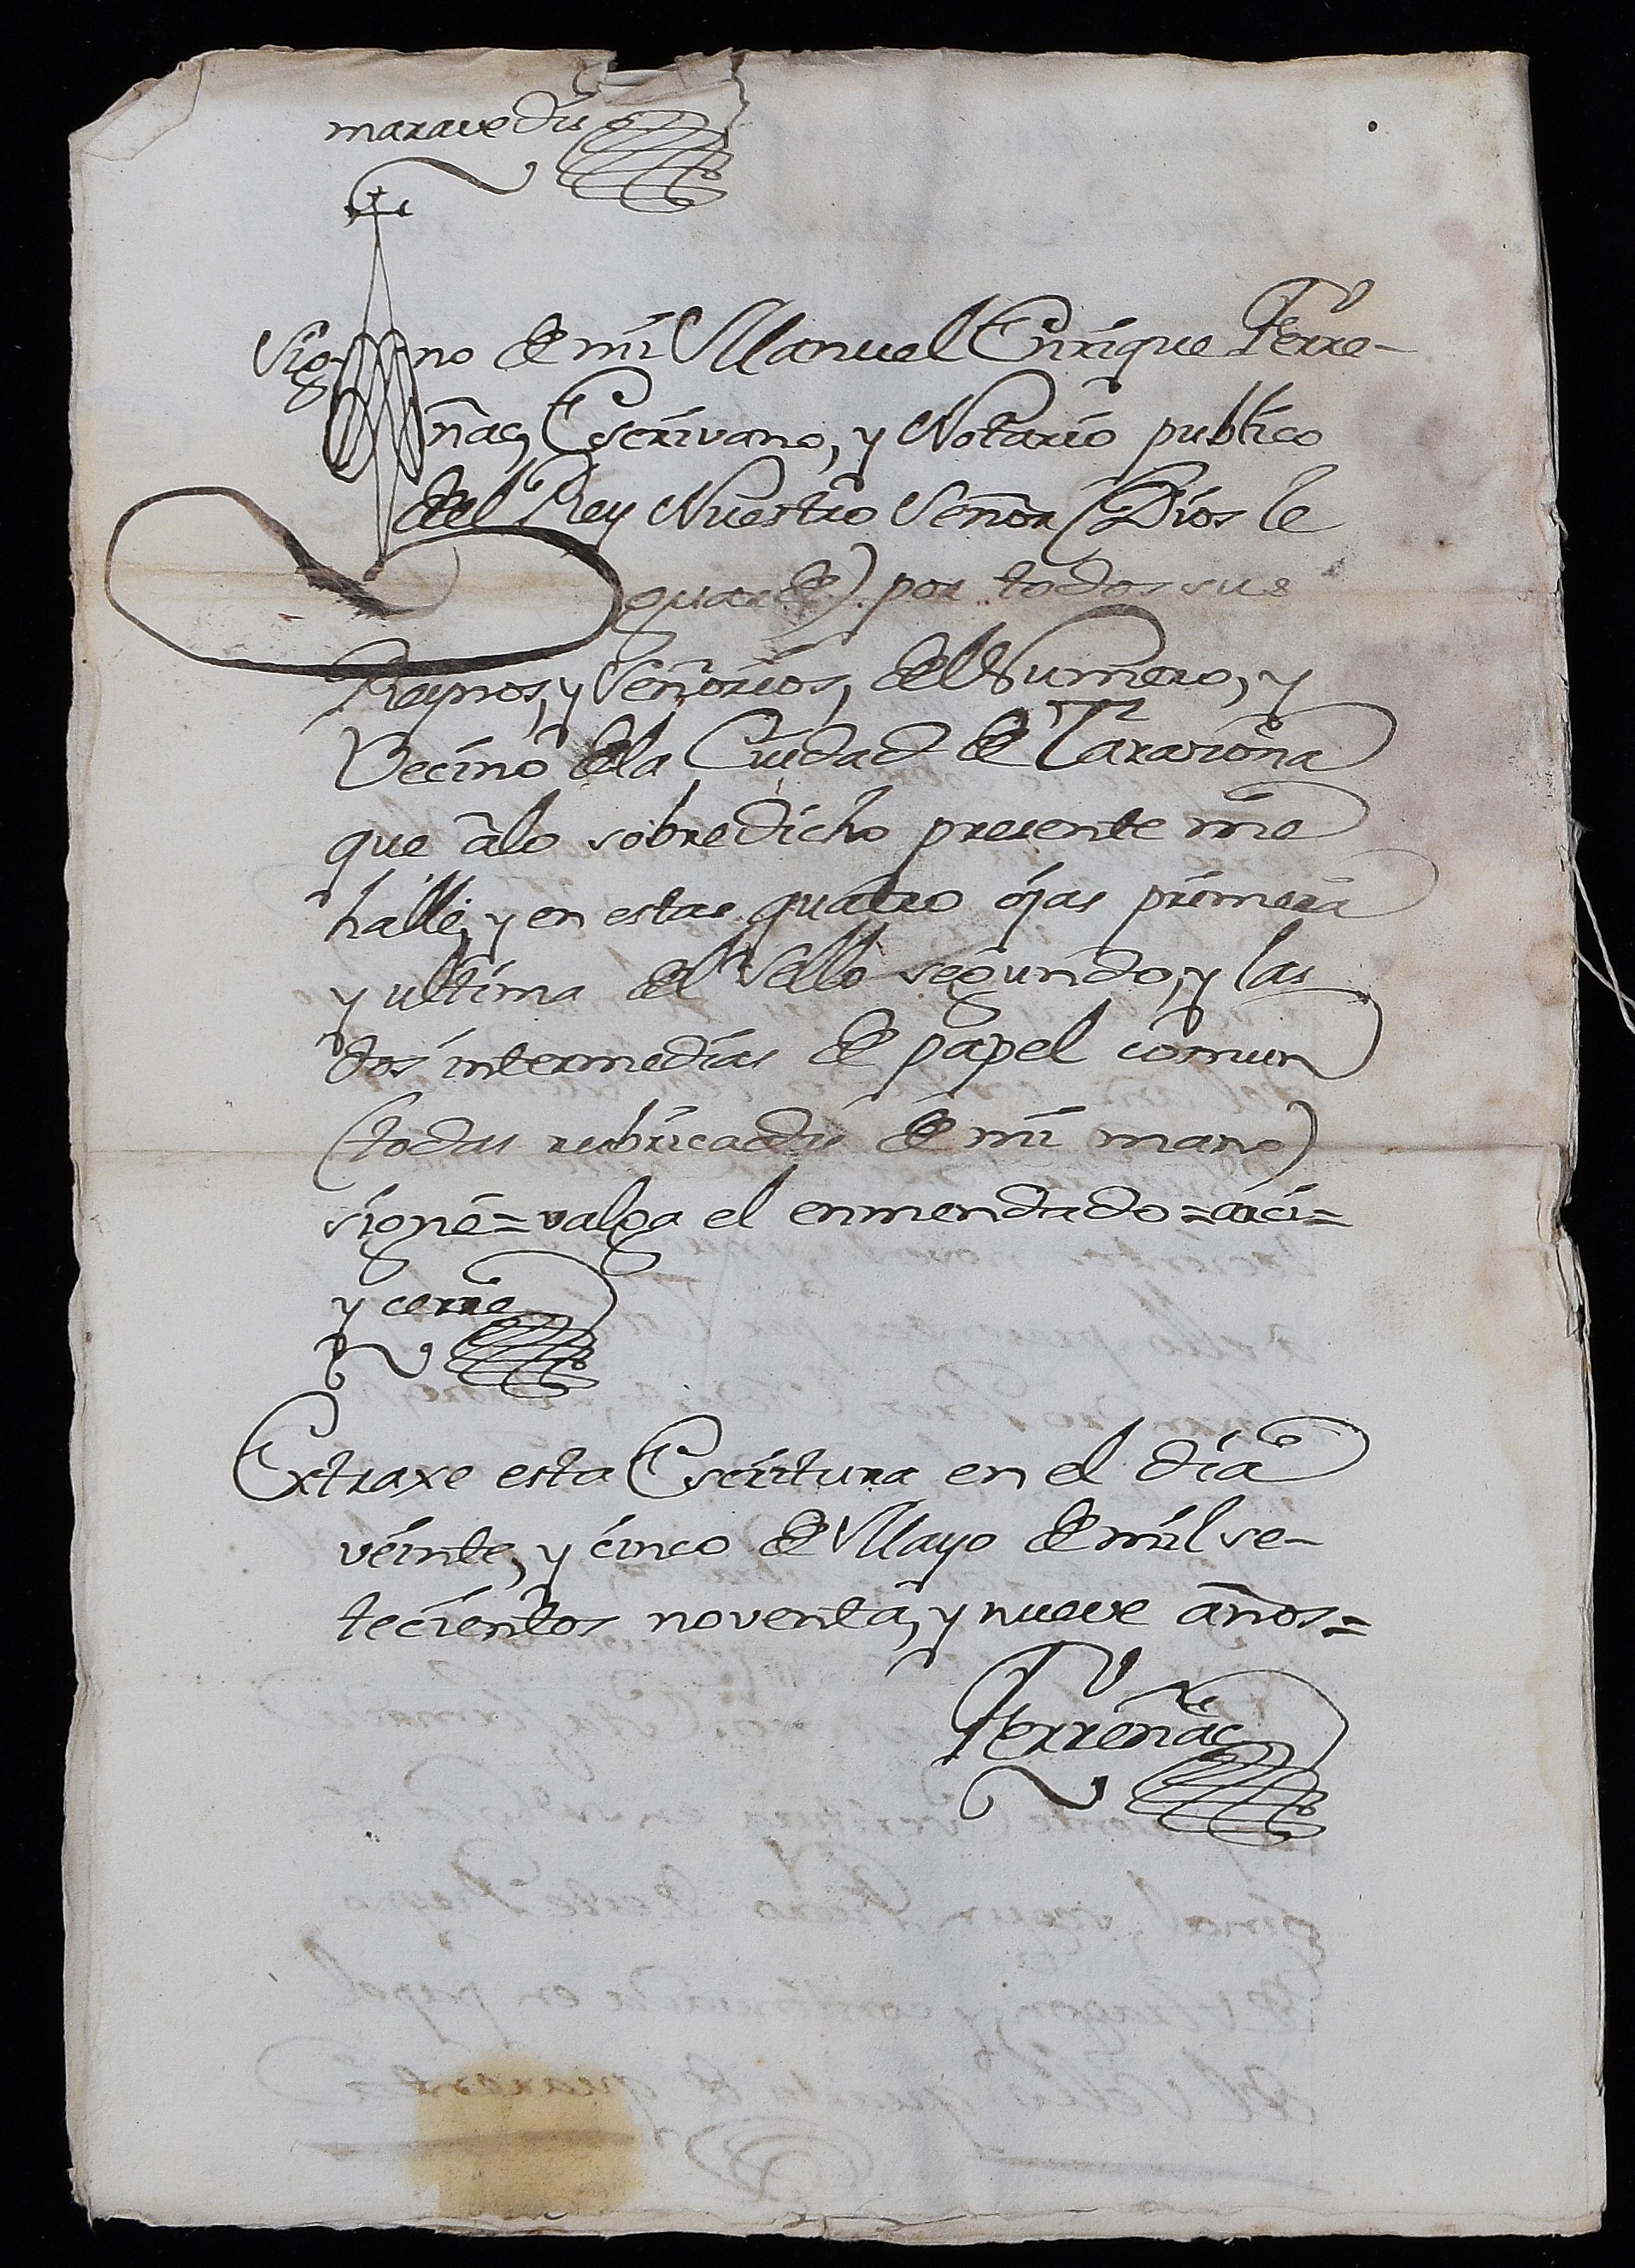 maravedis
Sig-no de mi Manuel Enrique Ferre-
ñac, Escrivano, y Notario publico
del Rey Nuestro Señor (Dios le
guarde) por todos sus
Reynos, y Señorios, del Numero, y
Vecino dela Ciudad de Tarazona
que àlo sobredicho presente me
hallé, y en estas quatro ojas primera
y ultima del Sello segundo, y las
dos intermedias de papel comun
(todas rubricadas de mi mano)
signé = valga el enmendado = aci =
y cerré
Extraxe esta Escritura en el dia
veinte, y cinco de Mayo de mil se-
tecientos noventa, y nueve años =
Ferreñac